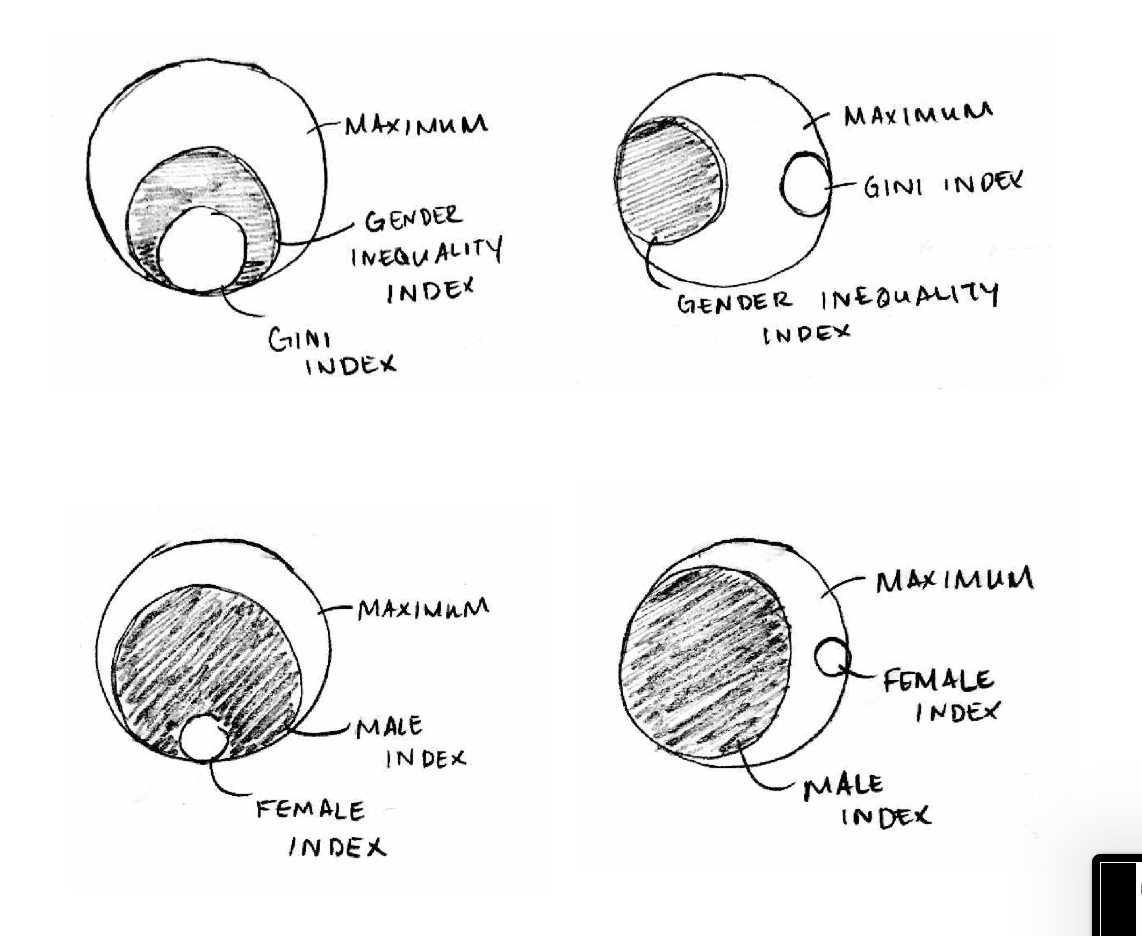 MAXIMUM
GENDER
INEQUALITY
INDEX
GINI
INDEX
MAXIMUM
GINI INDEX
GENDER INEQUALITY
INDEX
MAXIMUM
MALE
INDEX
FEMALE
INDEX
MAXIMUM
FEMALE
INDEX
MALE
INDEX